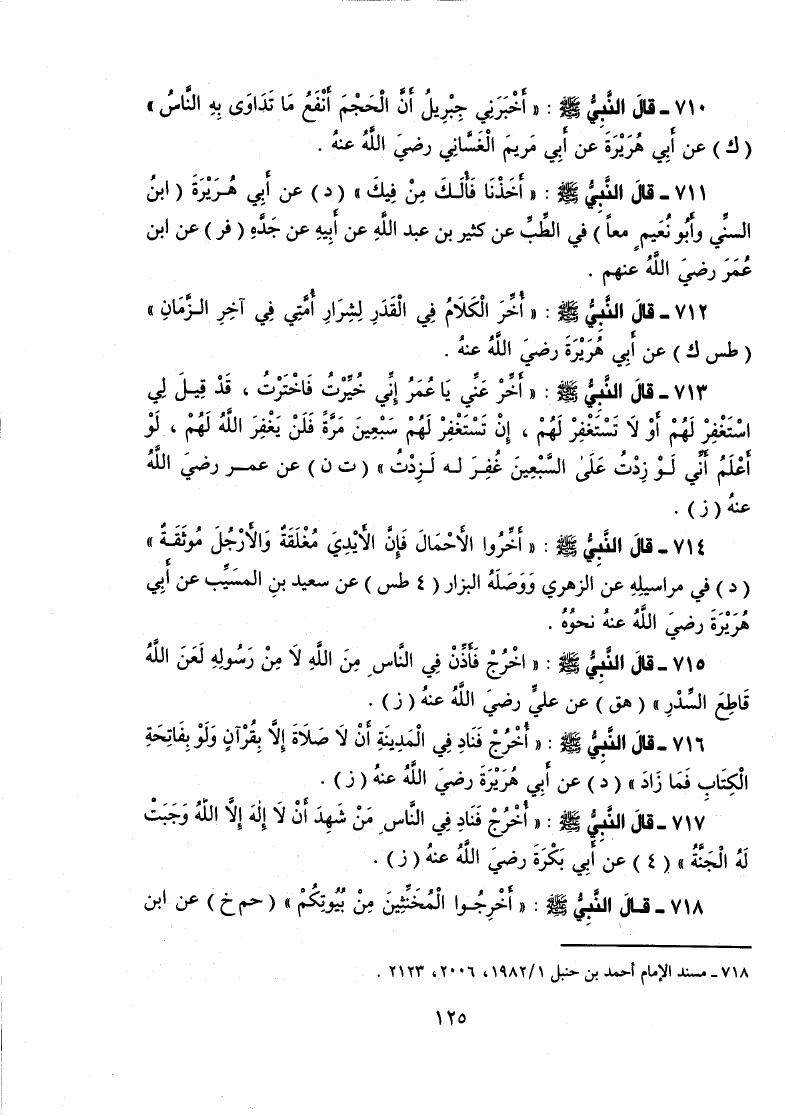 ٧١٠ ـ قالَ النَّبِيُّ ﷺ : « أَخْبَرَنِي جِبْرِيلُ أَنَّ الْحَجْمَ أَنْفَعُ مَا تَدَاوَى بِهِ النَّاسُ »
( ك ) عن أَبي هُرَيْرَةَ عن أَبي مَريمَ الْغَسَّاني رضيَ اللَّهُ عنهُ .
٧١١ ـ قالَ النَّبِيُّ ﷺ : « أَخَذْنَا فَأْلَكَ مِنْ فِيكَ » ( د ) عن أَبي هُرَيْرَةَ ( ابنُ
السني وأَبُو نُعَيمٍ معاً ) في الطِّبِّ عن كثير بن عبد اللَّهِ عن أَبيهِ عن جَدِّهِ ( فر ) عن ابن
عُمَرَ رضيَ اللَّهُ عنهم .
٧١٢ ـ قالَ النَّبِيُّ ﷺ : « أُخِّرَ الْكَلَامُ فِي الْقَدَرِ لِشِرَارِ أُمَّتِي فِي آخِرِ الزَّمَانِ »
( طس ك ) عن أَبي هُرَيْرَةَ رضيَ اللَّهُ عنهُ .
٧١٣ ـ قالَ النَّبِيُّ ﷺ : « أَخِّرْ عَنِّي يَا عُمَرُ إِنِّي خُيِّرْتُ فَاخْتَرْتُ ، قَدْ قِيلَ لِي
اسْتَغْفِرْ لَهُمْ أَوْ لَا تَسْتَغْفِرْ لَهُمْ ، إِنْ تَسْتَغْفِرْ لَهُمْ سَبْعِينَ مَرَّةً فَلَنْ يَغْفِرَ اللَّهُ لَهُمْ ، لَوْ
أَعْلَمُ أَنِّي لَوْ زِدْتُ عَلَىٰ السَّبْعِينَ غُفِرَ له لَزِدْتُ » ( ت ن ) عن عمر رضيَ اللَّهُ
عنهُ ( ز ) .
٧١٤ ـ قالَ النَّبِيُّ ﷺ : « أَخِّرُوا الأَحْمَالَ فَإِنَّ الأَيْدِيَ مُغْلَقَةٌ وَالأَرْجُلَ مُوثَقَةٌ »
( د ) في مراسيلِهِ عن الزهري وَوَصَلَهُ البزار ( ٤ طس ) عن سعيد بنِ المسَيَّب عن أَبي
هُرَيْرَةَ رضيَ اللَّهُ عنهُ نحوُهُ .
٧١٥ ـ قالَ النَّبِيُّ ﷺ : « اخْرُجْ فَأَذِّنْ فِي النَّاسِ مِنَ اللَّهِ لَا مِنْ رَسُولِهِ لَعَنَ اللَّهُ
قَاطِعَ السِّدْرِ » ( هق ) عن عليٍّ رضيَ اللَّهُ عنهُ ( ز ) .
٧١٦ ـ قالَ النَّبِيُّ ﷺ : « أُخْرُجْ فَنَادِ فِي الْمَدِينَةِ أَنْ لَا صَلَاةَ إِلَّا بِقُرْآنٍ وَلَوْ بِفَاتِحَةِ
الْكِتَابِ فَمَا زَادَ » ( د ) عن أَبي هُرَيْرَةَ رضيَ اللَّهُ عنهُ ( ز ) .
٧١٧ ـ قالَ النَّبِيُّ ﷺ : « أُخْرُجْ فَنَادِ فِي النَّاسِ مَنْ شَهِدَ أَنْ لَا إِلٰهَ إِلَّا اللَّهُ وَجَبَتْ
لَهُ الْجَنَّةُ » ( ٤ ) عن أَبي بَكْرَةَ رضيَ اللَّهُ عنهُ ( ز ) .
٧١٨ ـ قالَ النَّبِيُّ ﷺ : « أَخْرِجُوا الْمُخَنَّثِينَ مِنْ بُيُوتِكُمْ » ( حم خ ) عن ابن
٧١٨ ـ مسند الإمام أحمد بن حنبل ١٩٨٢/١ ، ٢٠٠٦ ، ٢١٢٣ .
١٢٥